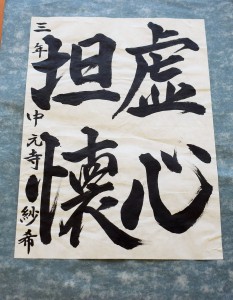 虚心
担懐
三年 中元寺 紗希